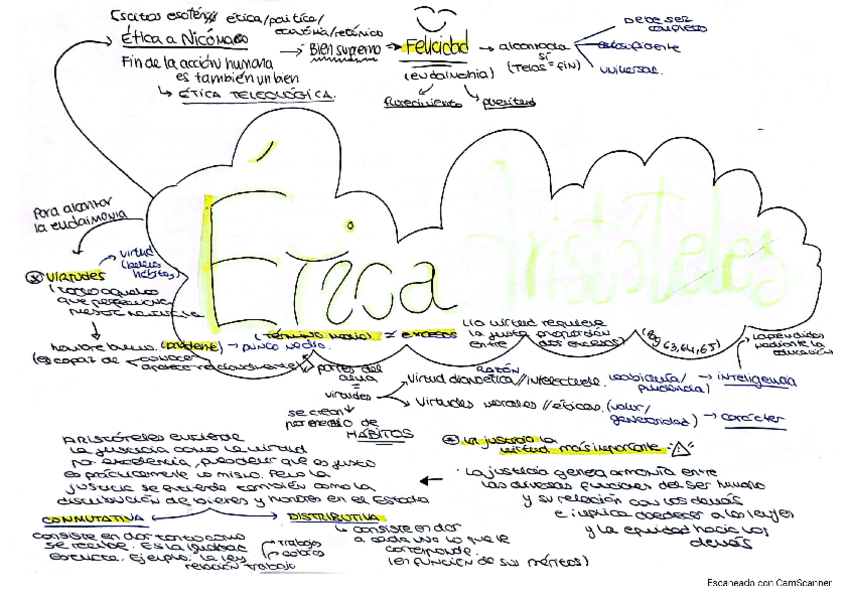 Escritos esotér // ética/política/
economía/retórica
Ética a Nicómaco
→ Bien supremo → Felicidad → alcanzarla
sí
(Telos = FIN)
DEBE SER
completo
autosuficiente
universal.
Fin de la acción humana
es también un bien
↳ ÉTICA TELEOLÓGICA.
(eudaimonía)
florecimiento
plenitud
Ética Aristóteles
Para alcanzar
la eudaimonía
virtud
(buenos
hábitos)
VIRTUDES
(todo aquello
que perfecciona
nuestra naturaleza
hombre bueno. (prudente) → punto medio.
(es capaz de conocer
racionalmente)
(TÉRMINO MEDIO) ≠ EXCESOS
(la virtud requiere
la justa proporción
entre dos excesos)
(pag 63,64,65)
aprendidos
mediante la
educación
partes del
alma
=
virtudes
RAZÓN
Virtud dianoética // intelectuale. (sabiduría/
prudencia) → inteligencia
Virtudes morales // éticas. (valor/
generosidad) → carácter
se crean
por medio de
HÁBITOS
La justicia la
virtud más importante.
ARISTÓTELES entiende
la justicia como la virtud
por excelencia, ser justo
es prácticamente lo mismo. Pero la
justicia se entiende también como la
distribución de bienes y honores en el Estado
La justicia genera armonía entre
las diversas funciones del ser humano
y su relación con los demás
e implica obedecer a las leyes
y la equidad hacia los
demás
CONMUTATIVA
DISTRIBUTIVA
consiste en dar tanto como
se recibe. Es la igualdad
estricta. Ejemplo: la ley
relación trabajo
trabajas
cobras
↳ consiste en dar
a cada uno lo que le
corresponde.
(en función de sus méritos)
Escaneado con CamScanner